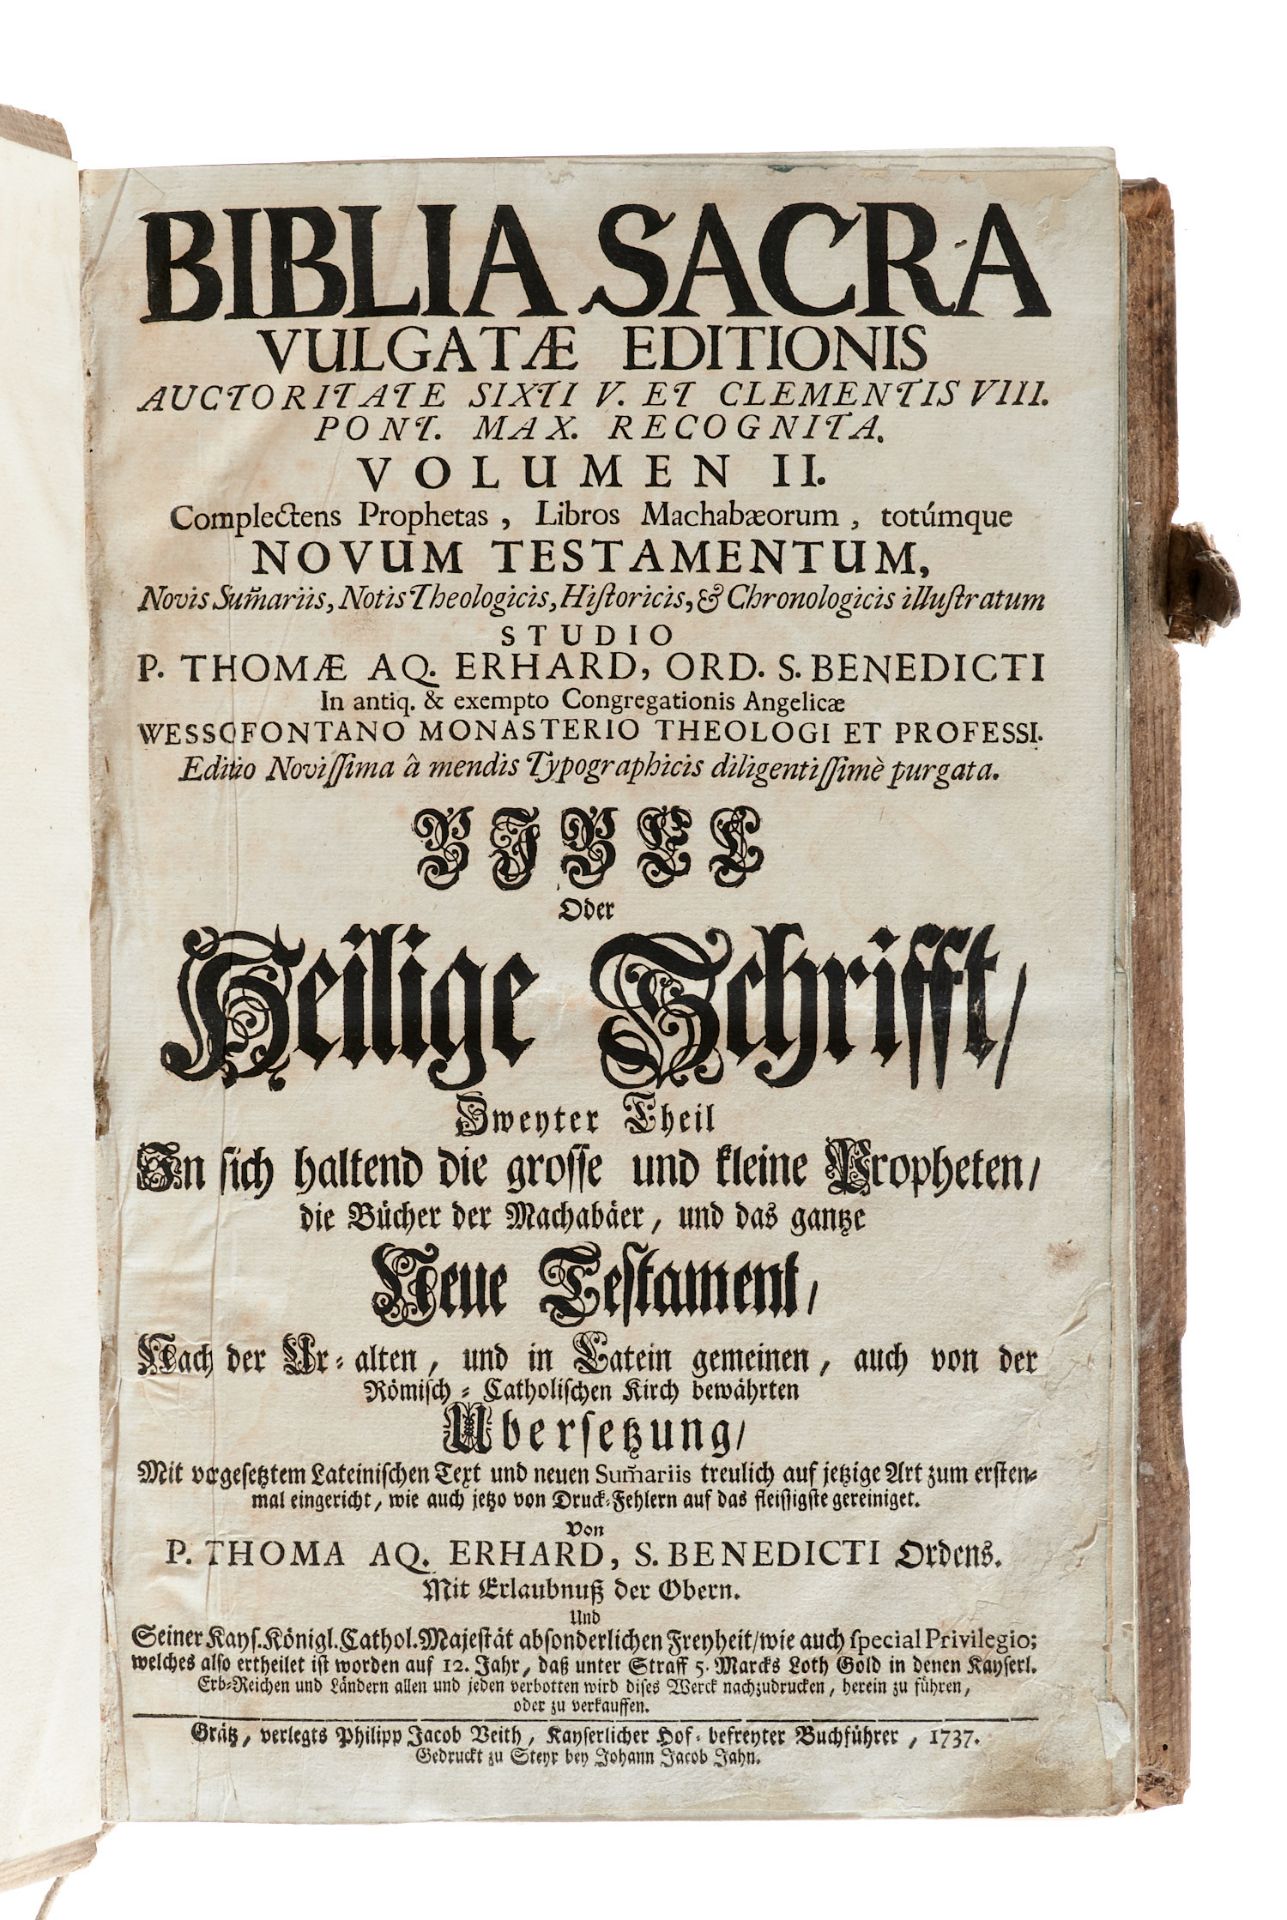 BIBLIA SACRA
VULGATÆ EDITIONIS
AUCTORITATE SIXTI V. ET CLEMENTIS VIII.
PONT. MAX. RECOGNITA.
VOLUMEN II.
Complectens Prophetas, Libros Machabæorum, totúmque
NOVUM TESTAMENTUM,
Novis Sum̃ariis, Notis Theologicis, Hiſtoricis, & Chronologicis illuſtratum
STUDIO
P. THOMÆ AQ. ERHARD, ORD. S. BENEDICTI
In antiq. & exempto Congregationis Angelicæ
WESSOFONTANO MONASTERIO THEOLOGI ET PROFESSI.
Editio Noviſſima â mendis Typographicis diligentiſſimè purgata.
BIBEL
Oder
Heilige Schrifft/
Zweyter Theil
In ſich haltend die groſſe und kleine Propheten/
die Bücher der Machabäer, und das gantze
Neue Teſtament/
Nach der Ur-alten, und in Latein gemeinen, auch von der
Römiſch-Catholiſchen Kirch bewährten
Überſetzung/
Mit vorgeſetztem Lateiniſchen Text und neuen Sum̃ariis treulich auf jetzige Art zum erſten-
mal eingericht, wie auch jetzo von Druck-Fehlern auf das fleiſſigſte gereiniget.
Von
P. THOMA AQ. ERHARD, S. BENEDICTI Ordens.
Mit Erlaubnuß der Obern.
Und
Seiner Kayſ. Königl. Cathol. Majeſtät abſonderlichen Freyheit/ wie auch ſpecial Privilegio;
welches alſo ertheilet iſt worden auf 12. Jahr, daß unter Straff 5. Marcks Loth Gold in denen Kayſerl.
Erb-Reichen und Ländern allen und jeden verbotten wird diſes Werck nachzudrucken, herein zu führen,
oder zu verkauffen.
Grätz, verlegts Philipp Jacob Veith, Kayſerlicher Hof-befreyter Buchführer, 1737.
Gedruckt zu Steyr bey Johann Jacob Jahn.